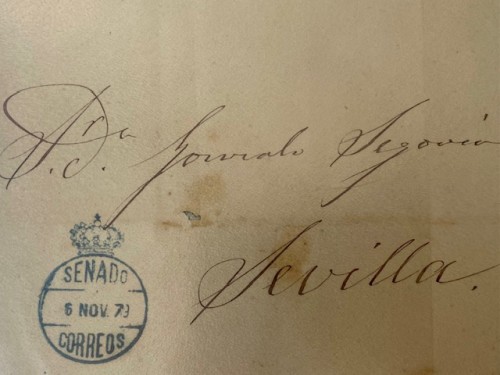 Sr. D. Gonzalo Segovia
Sevilla.
SENADO
6 NOV. 79
CORREOS